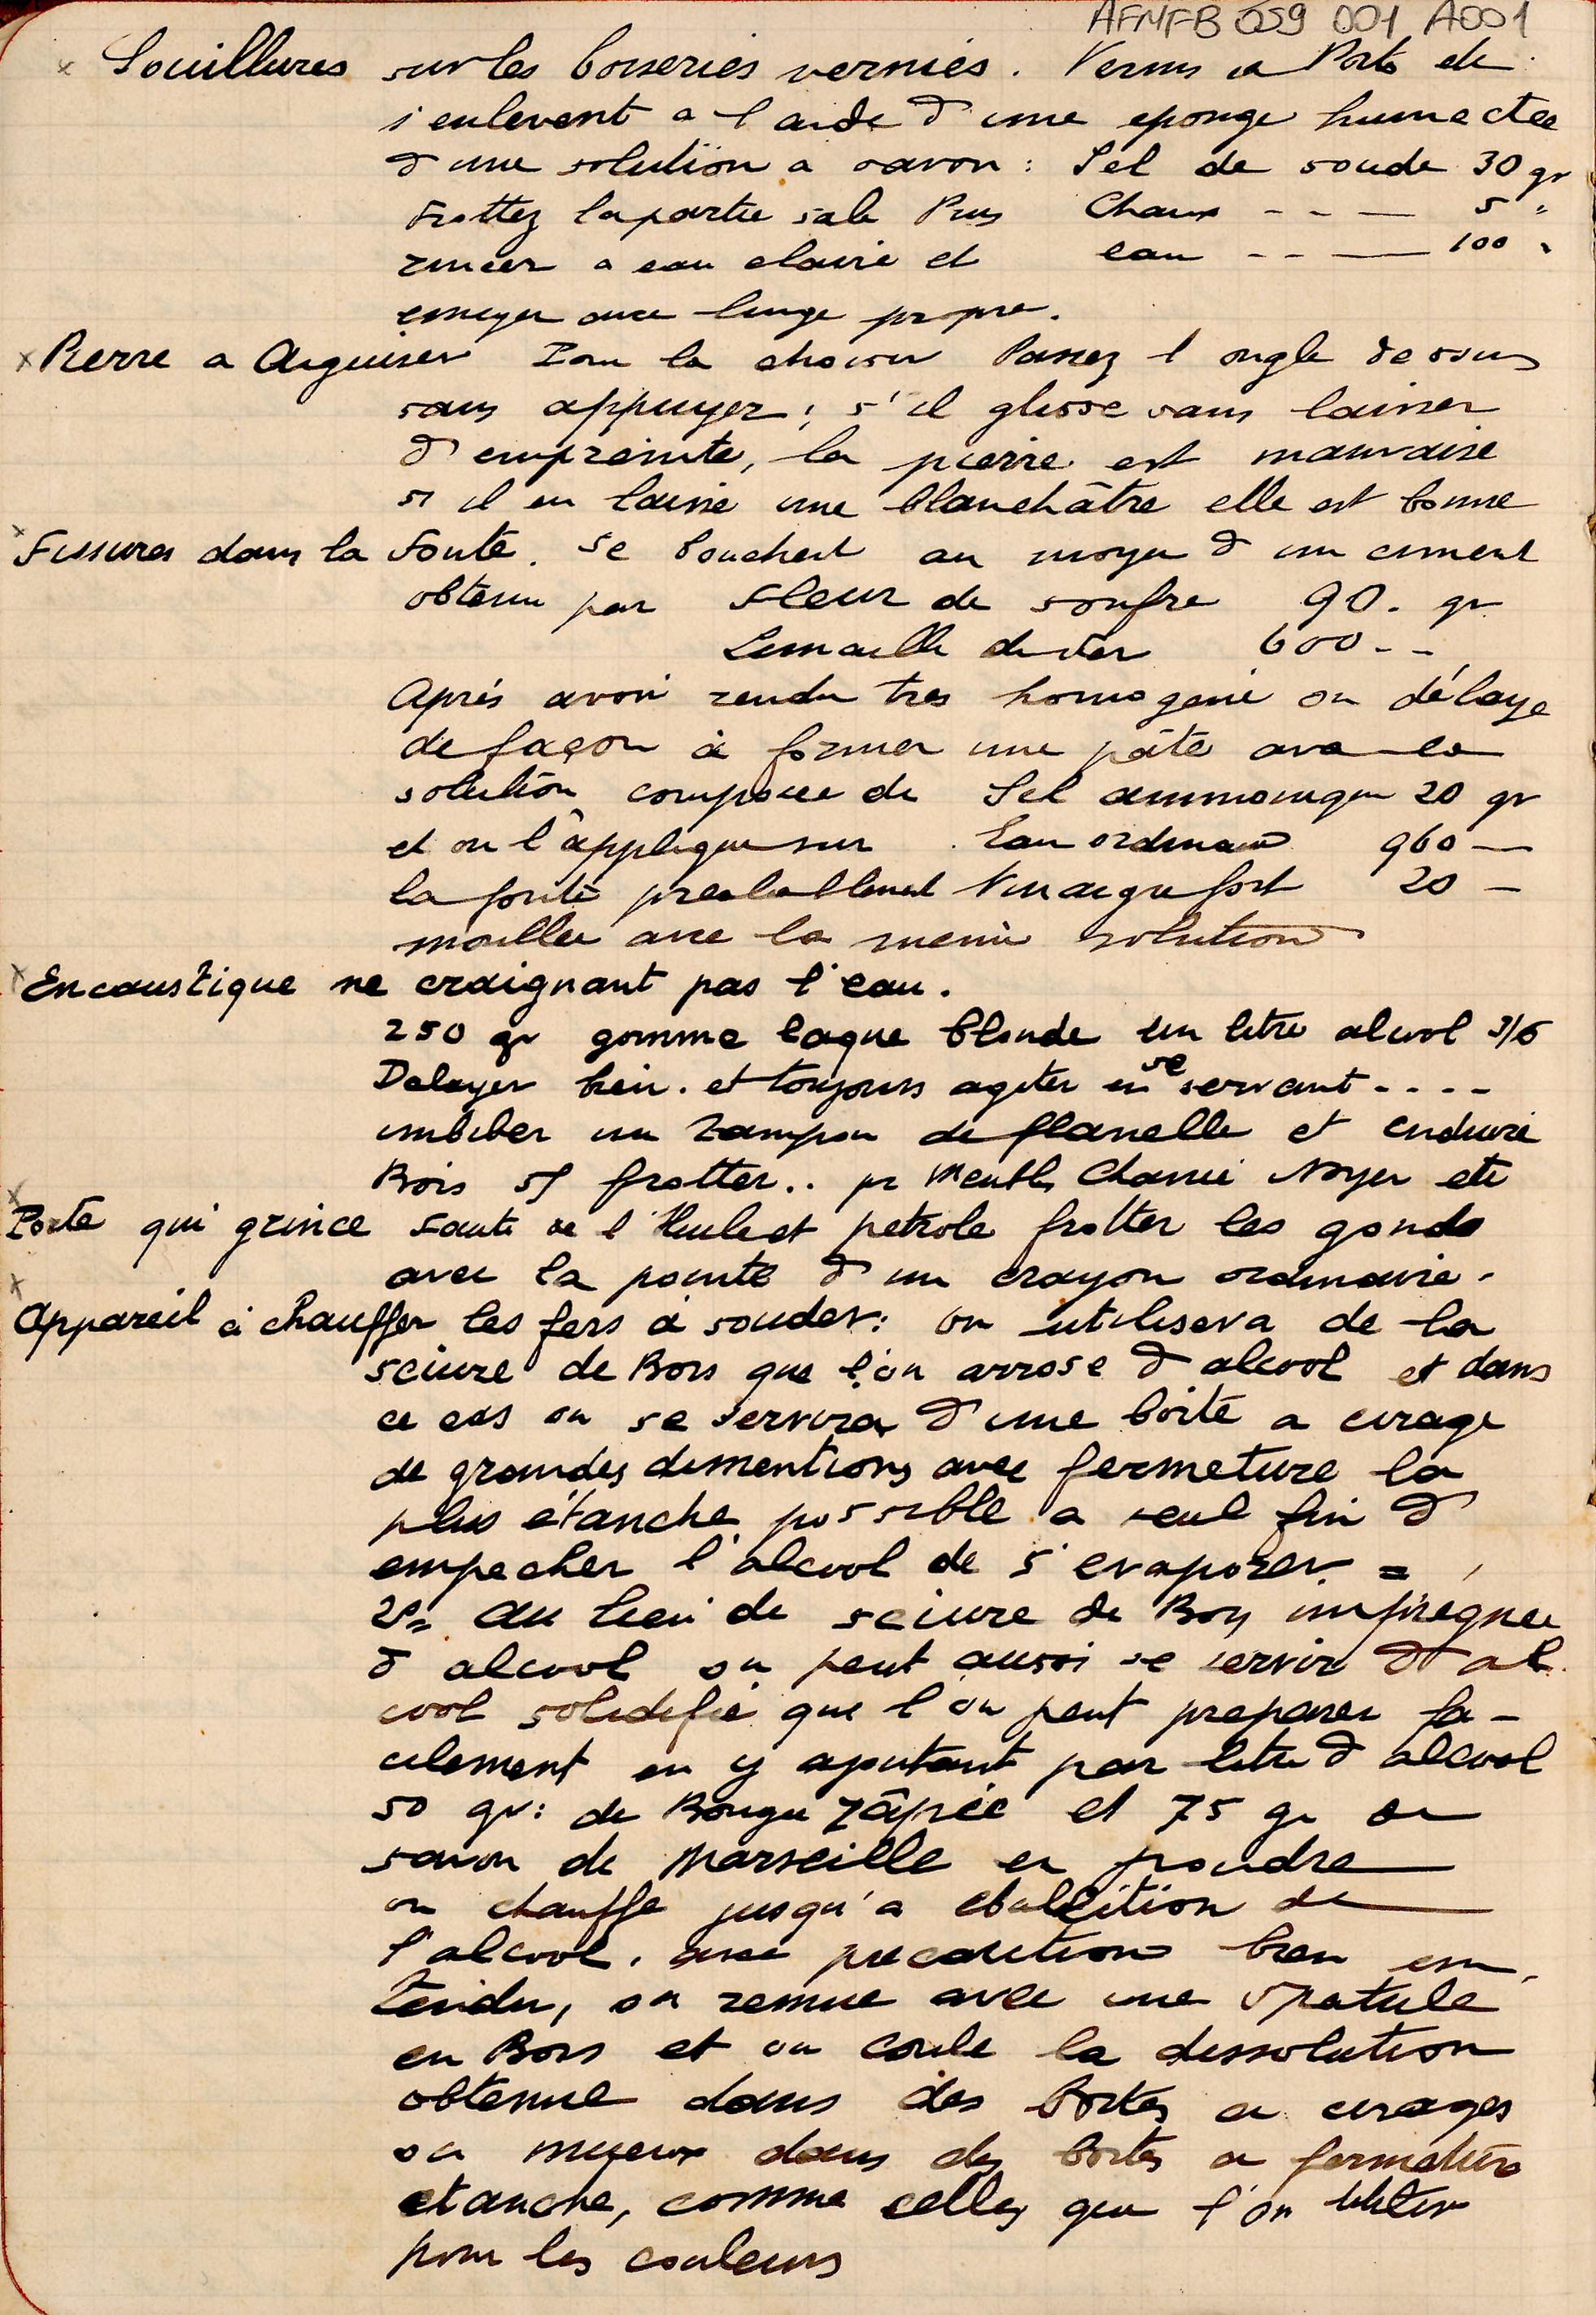 AFMFB 059 001 A001
x Souillures sur les boiseries vernies. Vernis a Porte etc
s enlevent a l aide d une eponge humectee
d une solution a savon : Sel de soude 30 gr
Frottez la partie sale Puis Chaux - - - 5 "
rincer a eau claire et eau - - - 100 "
essuyer avec linge propre.
x Pierre a Aiguiser Pour la choisir Passez l ongle dessus
sans appuyer ; s'il glisse sans laisser
d'empreinte, la pierre est mauvaise
si il en laisse une blanchâtre elle est bonne
x Fissures dans la Fonte. Se bouchent au moyen d un ciment
obtenu par Fleur de soufre 90. gr
Limaille de fer 600 - -
Après avoir rendu tres homogene on délaye
de façon à former une pâte avec la
solution composee de Sel ammoniaque 20 gr
et on l'applique sur Eau ordinaire 960 —
la fonte prealablement Vinaigre fort 20 —
mouillee avec la meme solution
x Encaustique ne craignant pas l'eau.
250 gr gomme laque blonde un litre alcool 3/6
Delayer bien. et toujours agiter en se servant - - - -
imbiber un tampon de flanelle et enduire
Bois et frotter.. pr Meubles Chene Noyer etc
x Porte qui grince Faute de l'Huile et petrole frotter les gonds
avec la pointe d'un crayon ordinaire.
x Appareil à chauffer les fers à souder: on utilisera de la
sciure de Bois que l'on arrose d alcool et dans
ce cas on se servira d'une boite a cirage
de grandes dimentions avec fermeture la
plus étanche possible a seul fin d
empecher l'alcool de s'evaporer. =
2º= Au lieu de sciure de Bois impregnee
d alcool on peut aussi se servir d al
cool solidifié que l'on peut preparer fa-
cilement en y ajoutant par litre d alcool
50 gr: de Bougie râpée et 75 gr de
savon de Marseille en poudre
on chauffe jusqu'a ebulition de
l'alcool. avec precautions bien en-
tendu, on remue avec une spatule
en Bois et on coule la dissolution
obtenue dans des Boites a cirages
ou mieux dans des boites a fermeture
etanche, comme celles que l'on utilise
pour les couleurs